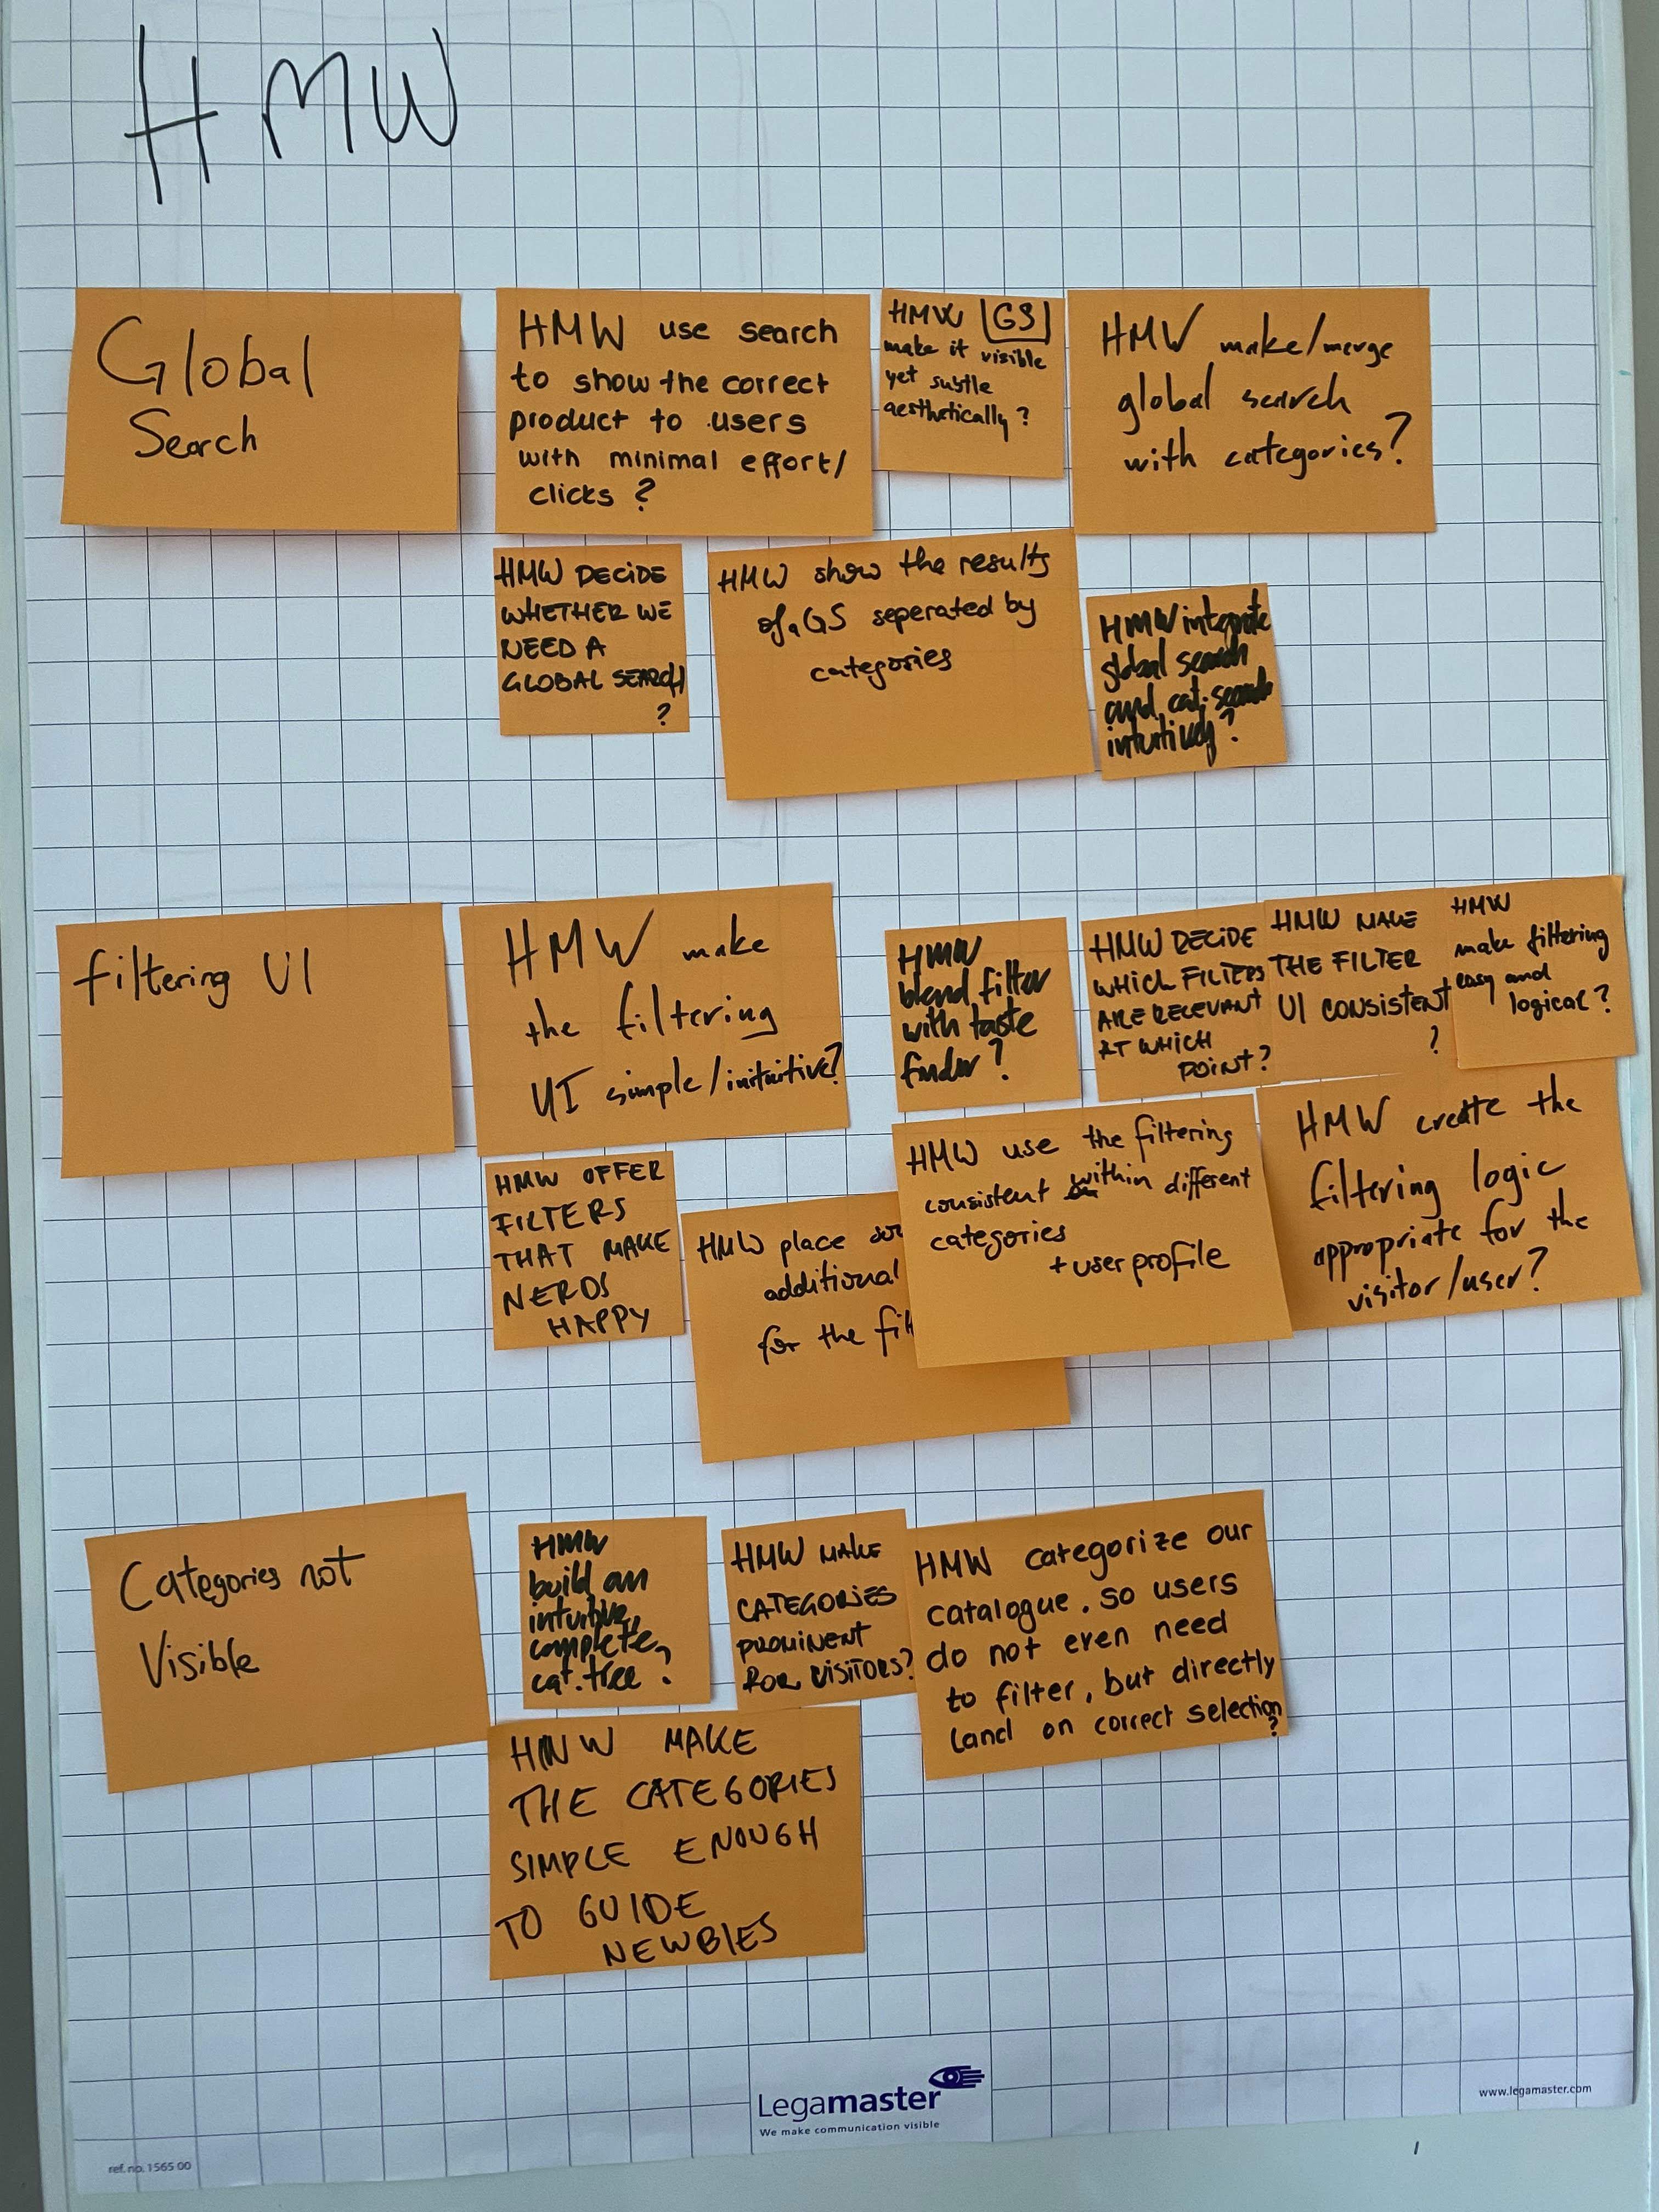 HMW
Global
Search
HMW use search
to show the correct
product to users
with minimal effort/
clicks ?
HMW GS
make it visible
yet subtle
aesthetically ?
HMW make/merge
global search
with categories?
HMW DECIDE
WHETHER WE
NEED A
GLOBAL SEARCH
?
HMW show the results
of a GS seperated by
categories
HMW integrate
global search
and cat. search
intuitively?
filtering UI
HMW make
the filtering
UI simple/inituitive?
HMW
blend filter
with taste
finder?
HMW DECIDE
WHICH FILTERS
ARE RELEVANT
AT WHICH
POINT?
HMW MAKE
THE FILTER
UI CONSISTENT
?
HMW
make filtering
easy and
logical?
HMW OFFER
FILTERS
THAT MAKE
NERDS
HAPPY
HMW place
additional
for the
HMW use the filtering
consistent within different
categories
+ user profile
HMW create the
filtering logic
appropriate for the
visitor/user?
Categories not
Visible
HMW
build an
intuitive,
complete,
cat. tree?
HMW MAKE
CATEGORIES
PROMINENT
FOR VISITORS?
HMW categorize our
catalogue, so users
do not even need
to filter, but directly
land on correct selection
?
HMW MAKE
THE CATEGORIES
SIMPLE ENOUGH
TO GUIDE
NEWBIES
Legamaster
We make communication visible
www.legamaster.com
ref. no. 1565 00